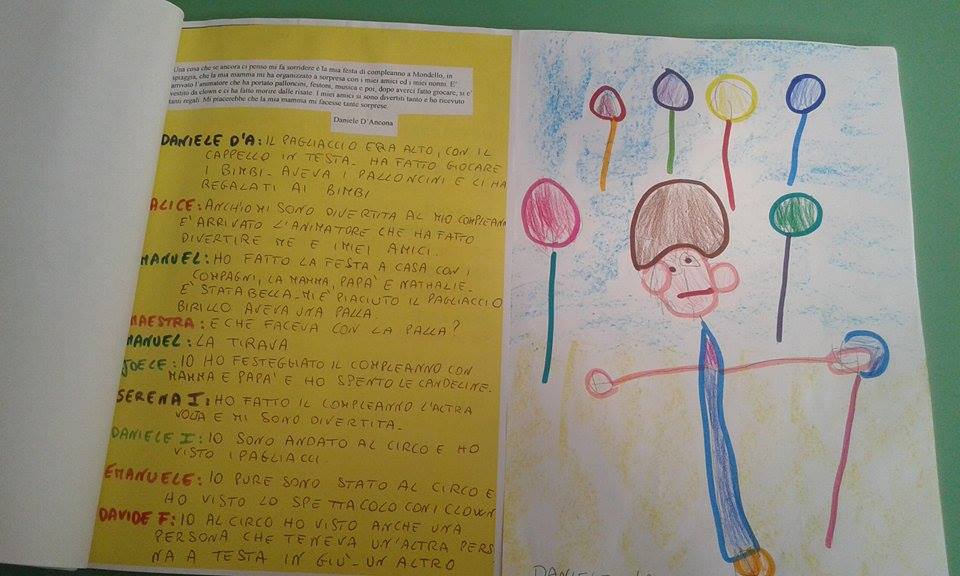 Una cosa che se ancora ci penso mi fa sorridere è la mia festa di compleanno a Mondello, in
spiaggia, che la mia mamma mi ha organizzato a sorpresa con i miei amici ed i miei nonni. E'
arrivato l'animatore che ha portato palloncini, festoni, musica e poi, dopo averci fatto giocare, si e'
vestito da clown e ci ha fatto morire dalle risate. I miei amici si sono divertiti tanto e ho ricevuto
tanti regali. Mi piacerebbe che la mia mamma mi facesse tante sorprese.
Daniele D'Ancona
DANIELE D'A: IL PAGLIACCIO ERA ALTO, CON IL
CAPPELLO IN TESTA. HA FATTO GIOCARE
I BIMBI. AVEVA I PALLONCINI E LI HA
REGALATI AI BIMBI
ALICE: ANCH'IO MI SONO DIVERTITA AL MIO COMPLEANN
E' ARRIVATO L'ANIMATORE CHE HA FATTO
DIVERTIRE ME E I MIEI AMICI.
MANUEL: HO FATTO LA FESTA A CASA CON I
COMPAGNI, LA MAMMA, PAPA' E NATHALIE.
E' STATA BELLA. MI E' PIACIUTO IL PAGLIACCIO
BIRILLO AVEVA UNA PALLA.
MAESTRA: E CHE FACEVA CON LA PALLA?
MANUEL: LA TIRAVA
JOELE: IO HO FESTEGGIATO IL COMPLEANNO CON
MAMMA E PAPA' E HO SPENTO LE CANDELINE.
SERENA I: HO FATTO IL COMPLEANNO L'ALTRA
VOLTA E MI SONO DIVERTITA.
DANIELE I: IO SONO ANDATO AL CIRCO E HO
VISTO I PAGLIACCI
EMANUELE: IO PURE SONO STATO AL CIRCO E
HO VISTO LO SPETTACOLO CON I CLOWN
DAVIDE F: IO AL CIRCO HO VISTO ANCHE UNA
PERSONA CHE TENEVA UN'ALTRA PERS
NA A TESTA IN GIU'. UN ALTRO
DANIELE